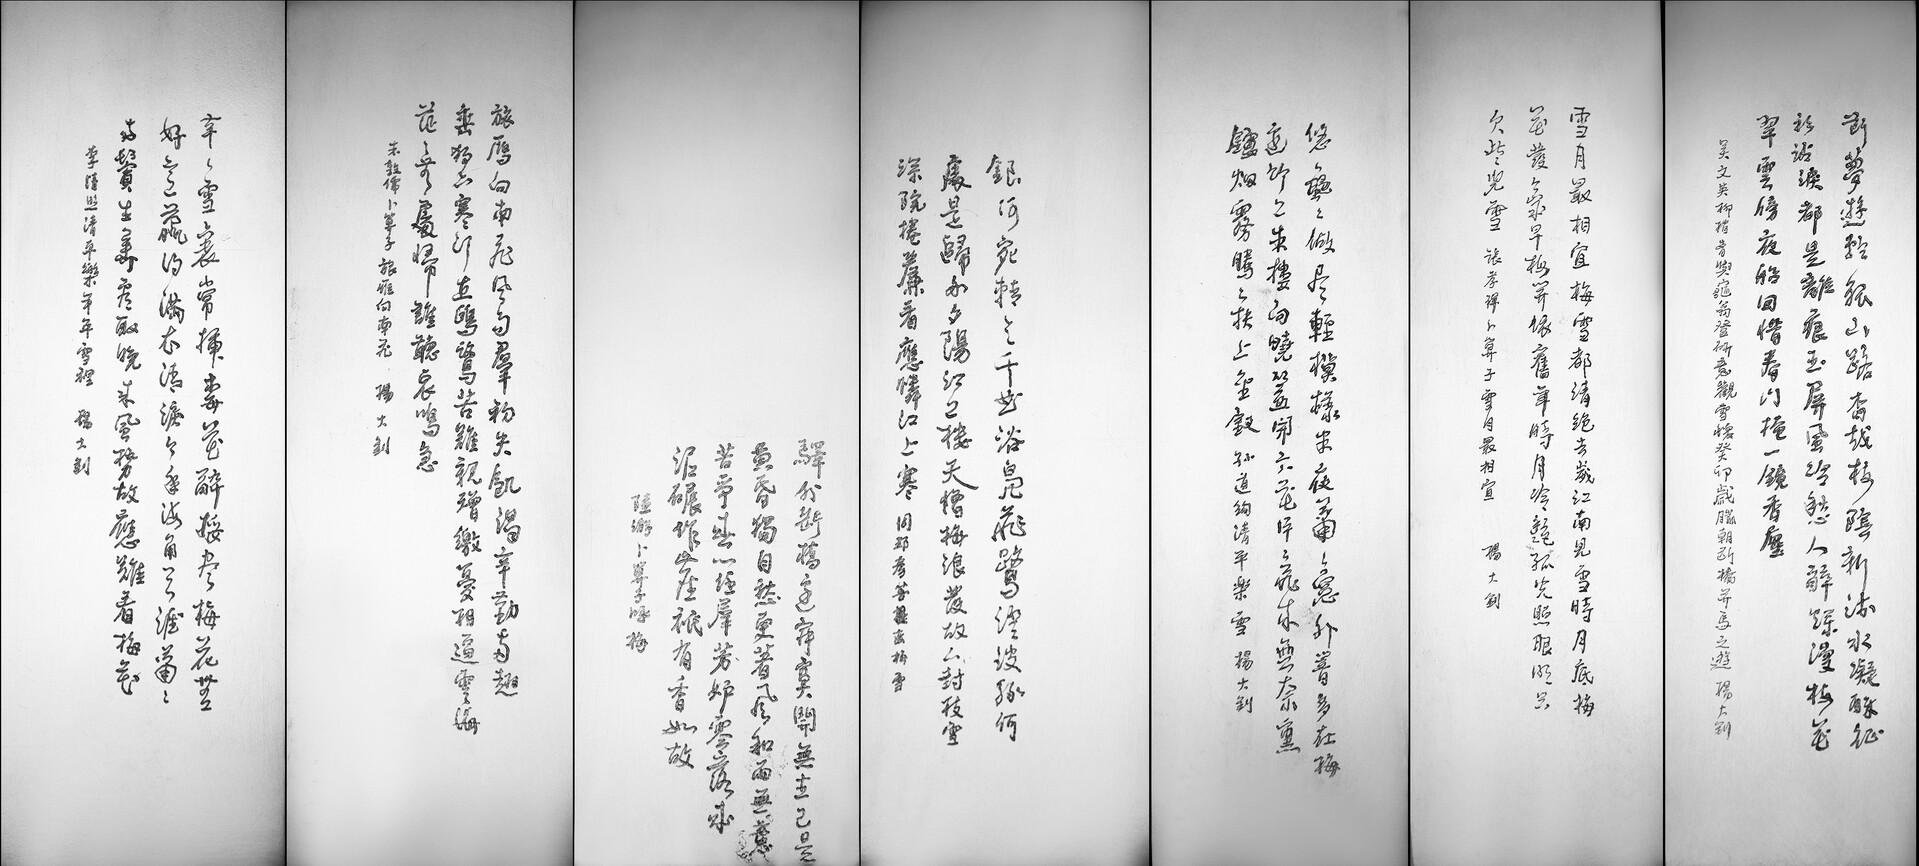 斷夢遊輪孤山路杳越樹陰新流水凝酥征
衫沾淚都是離痕玉屏風冷愁人醉爛漫梅花
翠雲傍夜船回惜春門掩一鏡香塵
吳文英柳梢青與龜翁登研意觀雪懷癸卯歲臘朝斷橋並馬之遊 楊大釗
雪月最相宜梅雪都清絕去歲江南見雪時月底梅
花發今歲早梅開依舊年時月冷艷孤光照眼明只
欠些兒雪 張孝祥卜算子雪月最相宜 楊大釗
悠々颺々做盡輕模樣半夜蕭々窗外響多在梅
邊竹上朱樓向曉簾開六花片々飛來無奈熏
爐烟霧騰々扶上金釵 孫道絢清平樂雪 楊大釗
銀河宛轉三千曲浴鳧飛鷺澄波綠何
處是歸舟夕陽江上樓天憎梅浪發故下封枝雪
深院捲簾看應憐江上寒 周邦彥菩薩蠻梅雪
驛外斷橋邊寂寞開無主已是
黃昏獨自愁更著風和雨無意
苦爭春一任羣芳妒零落成
泥碾作塵祇有香如故
陸游卜算子詠梅
旅雁向南飛風雨羣初失飢渴辛勤兩翅
垂獨下寒汀立鷗鷺苦難親矰繳憂相逼雲海
茫々無處歸誰聽哀鳴急
朱敦儒卜算子旅雁向南飛 楊大釗
年々雪裏常插梅花醉挼盡梅花無
好意贏得滿衣清淚今年海角天涯蕭々
兩鬢生華看取晚來風勢故應難看梅花
李清照清平樂年年雪裡 楊大釗